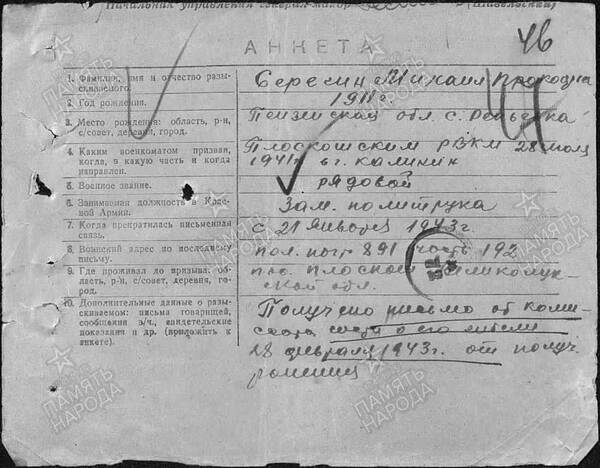 Начальник управления генерал-майор (Шавельский)
АНКЕТА
46
1. Фамилия, имя и отчество разыскиваемого.
Сересин Михаил Прокоф
2. Год рождения.
1911 г.
3. Место рождения: область, р-н, с/совет, деревня, город.
Пензенской обл. с.
4. Каким военкоматом призван, когда, в какую часть и когда направлен.
Плоскошским РВКМ 28 июля
1941 г. в г. Калинин
5. Военное звание.
рядовой
6. Занимаемая должность в Красной Армии.
Зам. политрука
7. Когда прекратилась письменная связь.
с 21 января 1943 г.
8. Воинский адрес по последнему письму.
пол. почт 891 часть 192
9. Где проживал до призыва: область, р-н, с/совет, деревня, город.
Великолук-
ской обл.
10. Дополнительные данные о разыскиваемом: письма товарищей, сообщения в/ч, свидетельские показания и др. (приложить к анкете).
Получено письмо от коми-
о его гибели
28 февраля 1943 г. от получ.
ранения
ПАМЯТЬ НАРОДА